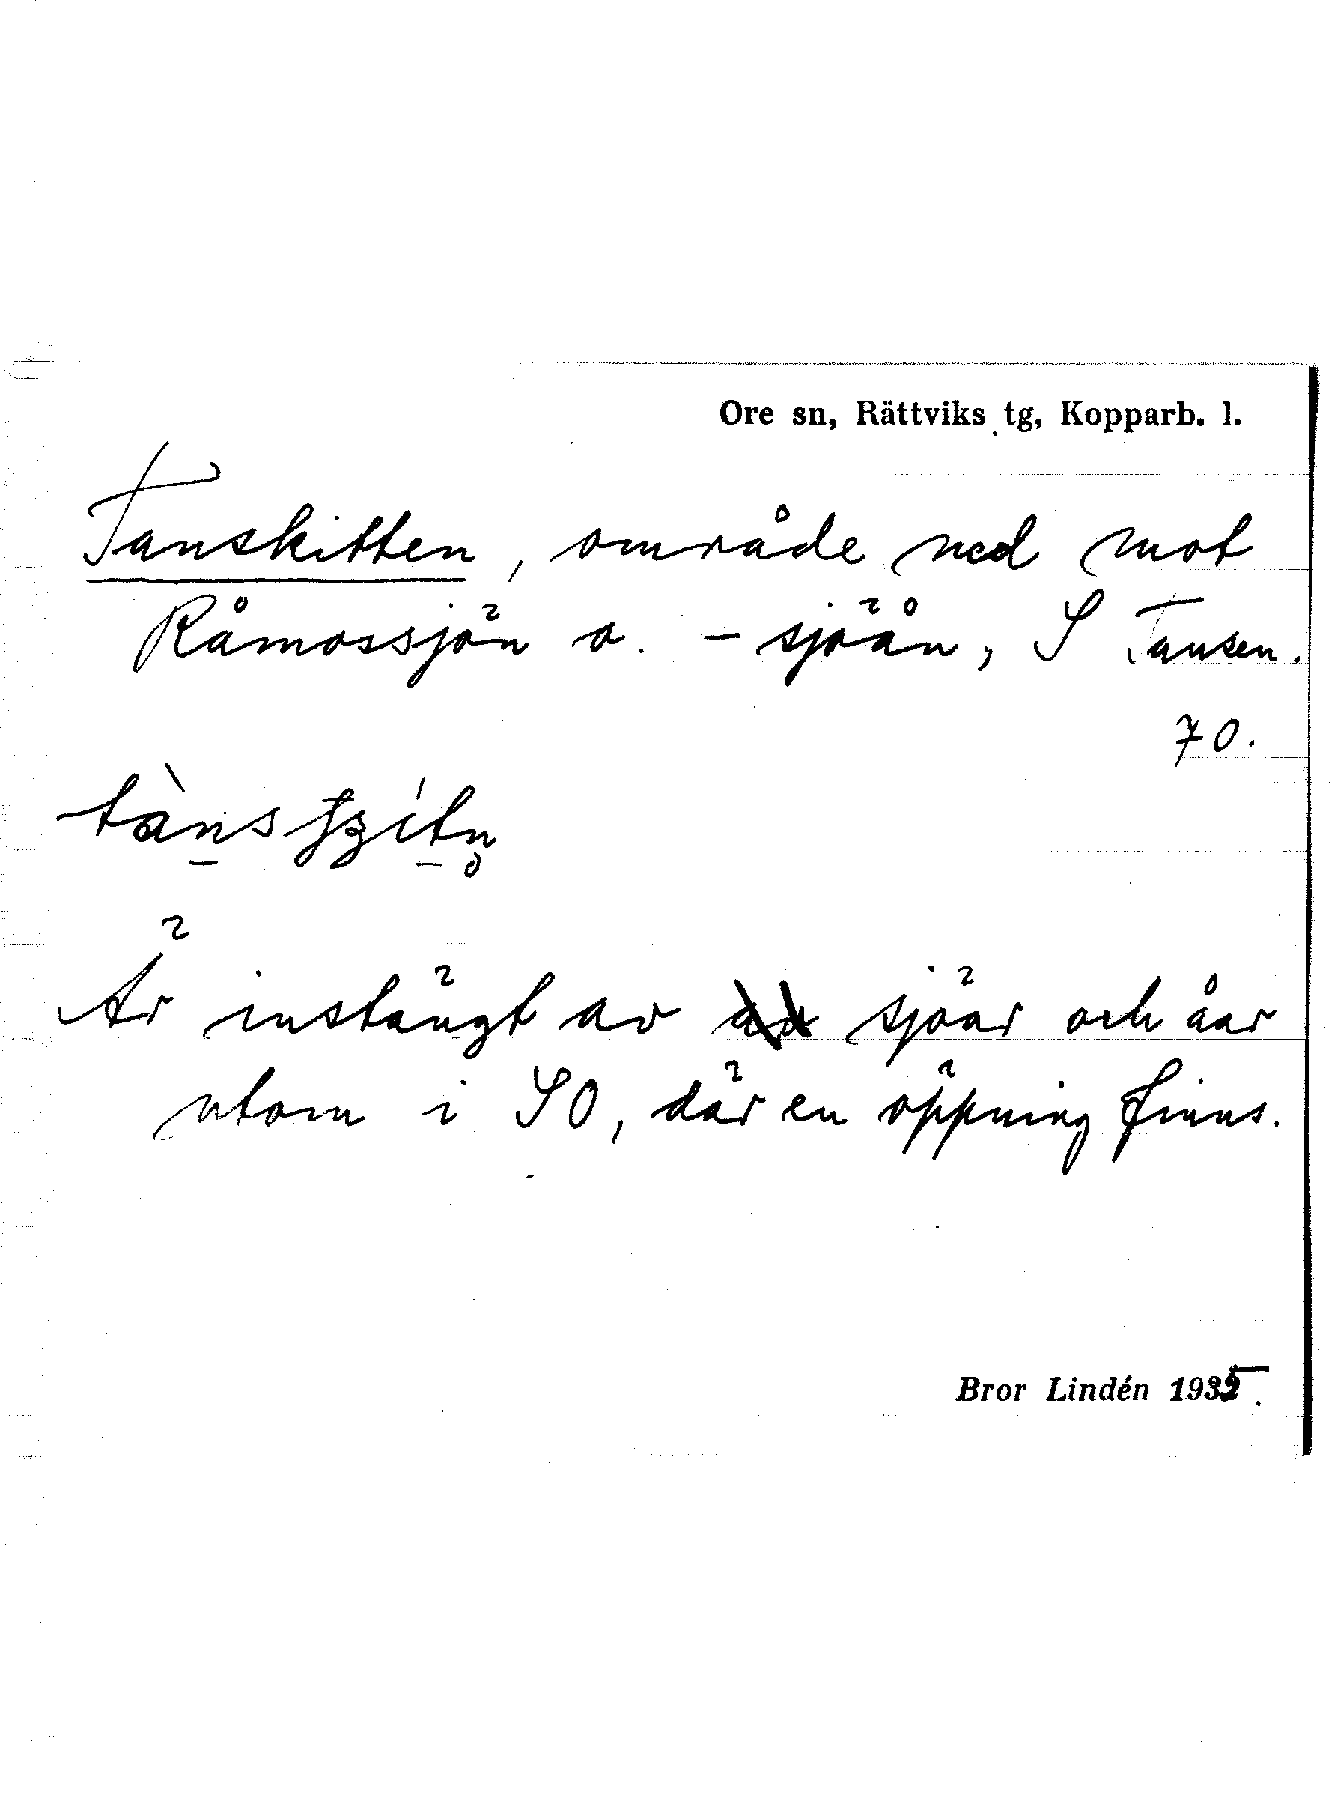 Ore sn, Rättviks tg, Kopparb. l.
Tanskitten, område ned mot
Råmossjön o. -sjöån, S Tansen.
70.
Är instängt av sjöar och åar
utom i SO, där en öppning finns.
Bror Lindén 1935.